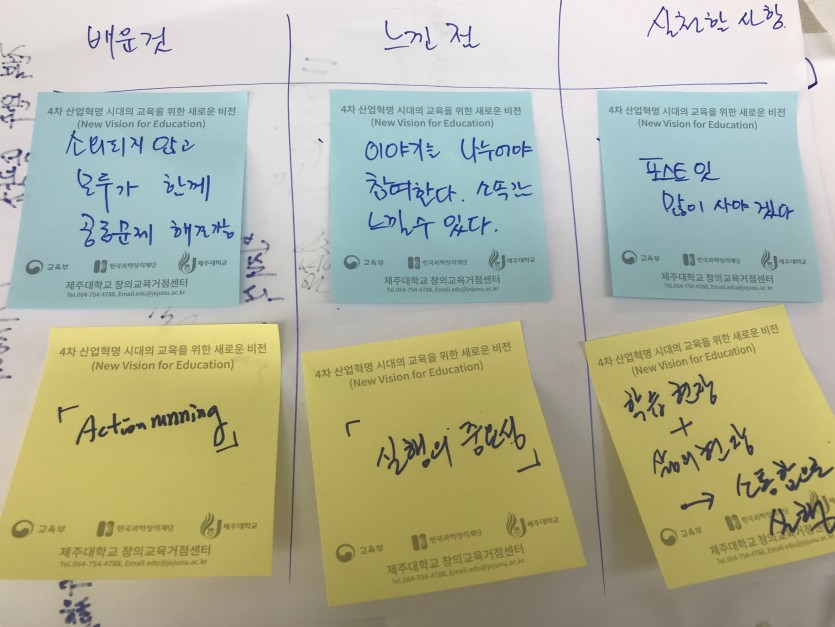 배운것
느낀 점
실천할 사항
4차 산업혁명 시대의 교육을 위한 새로운 비전
(New Vision for Education)
소외되지 않고
모두가 함께
공통문제 해결가능
교육부 한국과학창의재단 제주대학교
제주대학교 창의교육거점센터
Tel.064-754-4788, Email.edu@jejunu.ac.kr
4차 산업혁명 시대의 교육을 위한 새로운 비전
(New Vision for Education)
이야기는 나누어야
참여한다. 소속감
느낄수 있다.
교육부 한국과학창의재단 제주대학교
제주대학교 창의교육거점센터
Tel.064-754-4788, Email.edu@jejunu.ac.kr
4차 산업혁명 시대의 교육을 위한 새로운 비전
(New Vision for Education)
포스트 잇
많이 사야 겠다
교육부 한국과학창의재단 제주대학교
제주대학교 창의교육거점센터
Tel.064-754-4788, Email.edu@jejunu.ac.kr
4차 산업혁명 시대의 교육을 위한 새로운 비전
(New Vision for Education)
「Action running」
교육부 한국과학창의재단 제주대학교
제주대학교 창의교육거점센터
Tel.064-754-4788, Email.edu@jejunu.ac.kr
4차 산업혁명 시대의 교육을 위한 새로운 비전
(New Vision for Education)
「실행의 중요성」
교육부 한국과학창의재단 제주대학교
제주대학교 창의교육거점센터
Tel.064-754-4788, Email.edu@jejunu.ac.kr
4차 산업혁명 시대의 교육을 위한 새로운 비전
(New Vision for Education)
학습 현장
+
삶의 현장
→ 소통함으로
실행
교육부 한국과학창의재단
제주대학교 창의교육거점센터
Tel.064-754-4788, Email.edu@jejunu.ac.kr